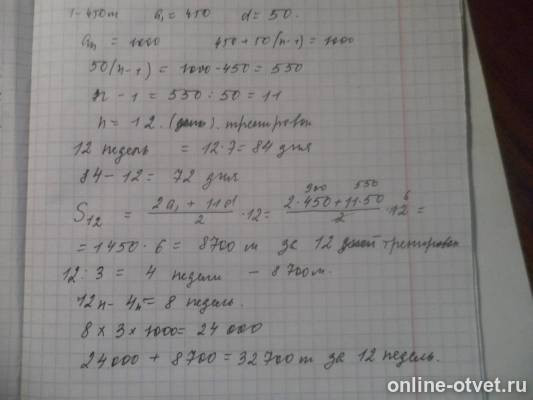 1 - 450 m a₁ = 450 d = 50.
aₙ = 1000 450 + 50 (n - 1) = 1000
50 (n - 1) = 1000 - 450 = 550
n - 1 = 550 : 50 = 11
n = 12. тренировок
12 недель = 12 · 7 = 84 дня
84 - 12 = 72 дня
S₁₂ = (2a₁ + 11d)/2 · 12 = (2 · 450 + 11 · 50)/2 · 12 = 900 550 6
= 1450 · 6 = 8700 м за 12 тренировок
12 : 3 = 4 недели - 8700 м.
12н - 4н = 8 недель.
8 x 3 x 1000 = 24 000
24 000 + 8700 = 32 700 m за 12 недель.
online-otvet.ru